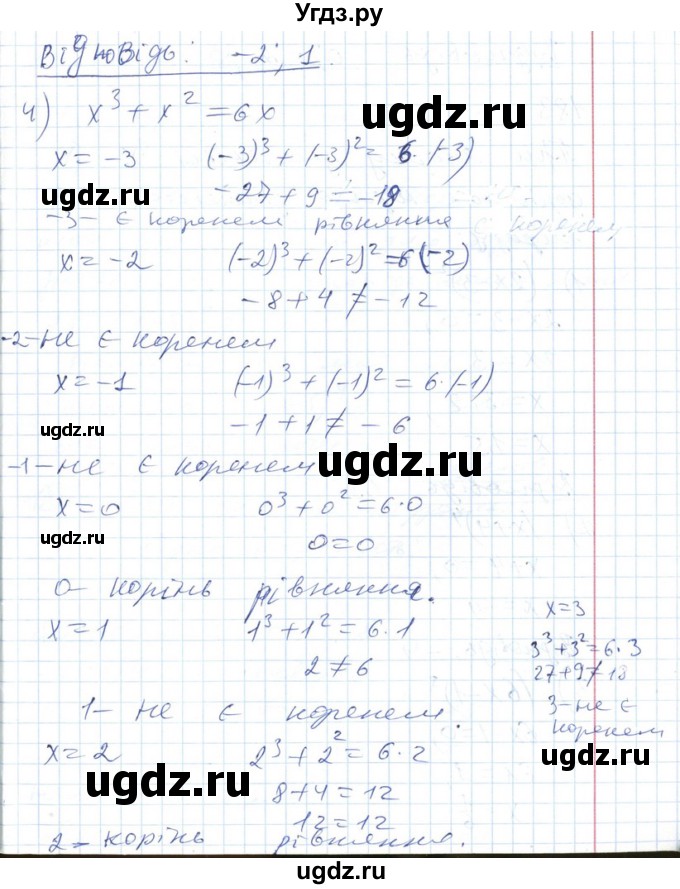 Угдз.ру
Відповідь: -2; 1.
4) x³ + x² = 6x
ugdz.ru
x = -3 (-3)³ + (-3)² = 6·(-3)
ugdz.ru
-27 + 9 = -18
ugdz.ru
-3 - є коренем рівняння є коренем
x = -2 (-2)³ + (-2)² = 6(-2)
-8 + 4 ≠ -12
-2 - не є коренем
x = -1 (-1)³ + (-1)² = 6·(-1)
-1 + 1 ≠ -6
ugdz.ru
-1 - не є коренем
ugdz.ru
x = 0 0³ + 0² = 6·0
ugdz.ru
0 = 0
0 - корінь рівняння.
x = 1 1³ + 1² = 6·1
2 ≠ 6
ugdz.ru
1 - не є коренем.
x = 3
3³ + 3² = 6·3
27 + 9 ≠ 18
3 - не є
коренем
x = 2 2³ + 2² = 6·2
ugdz.ru
8 + 4 = 12
12 = 12
2 - корінь рівняння.
ugdz.ru